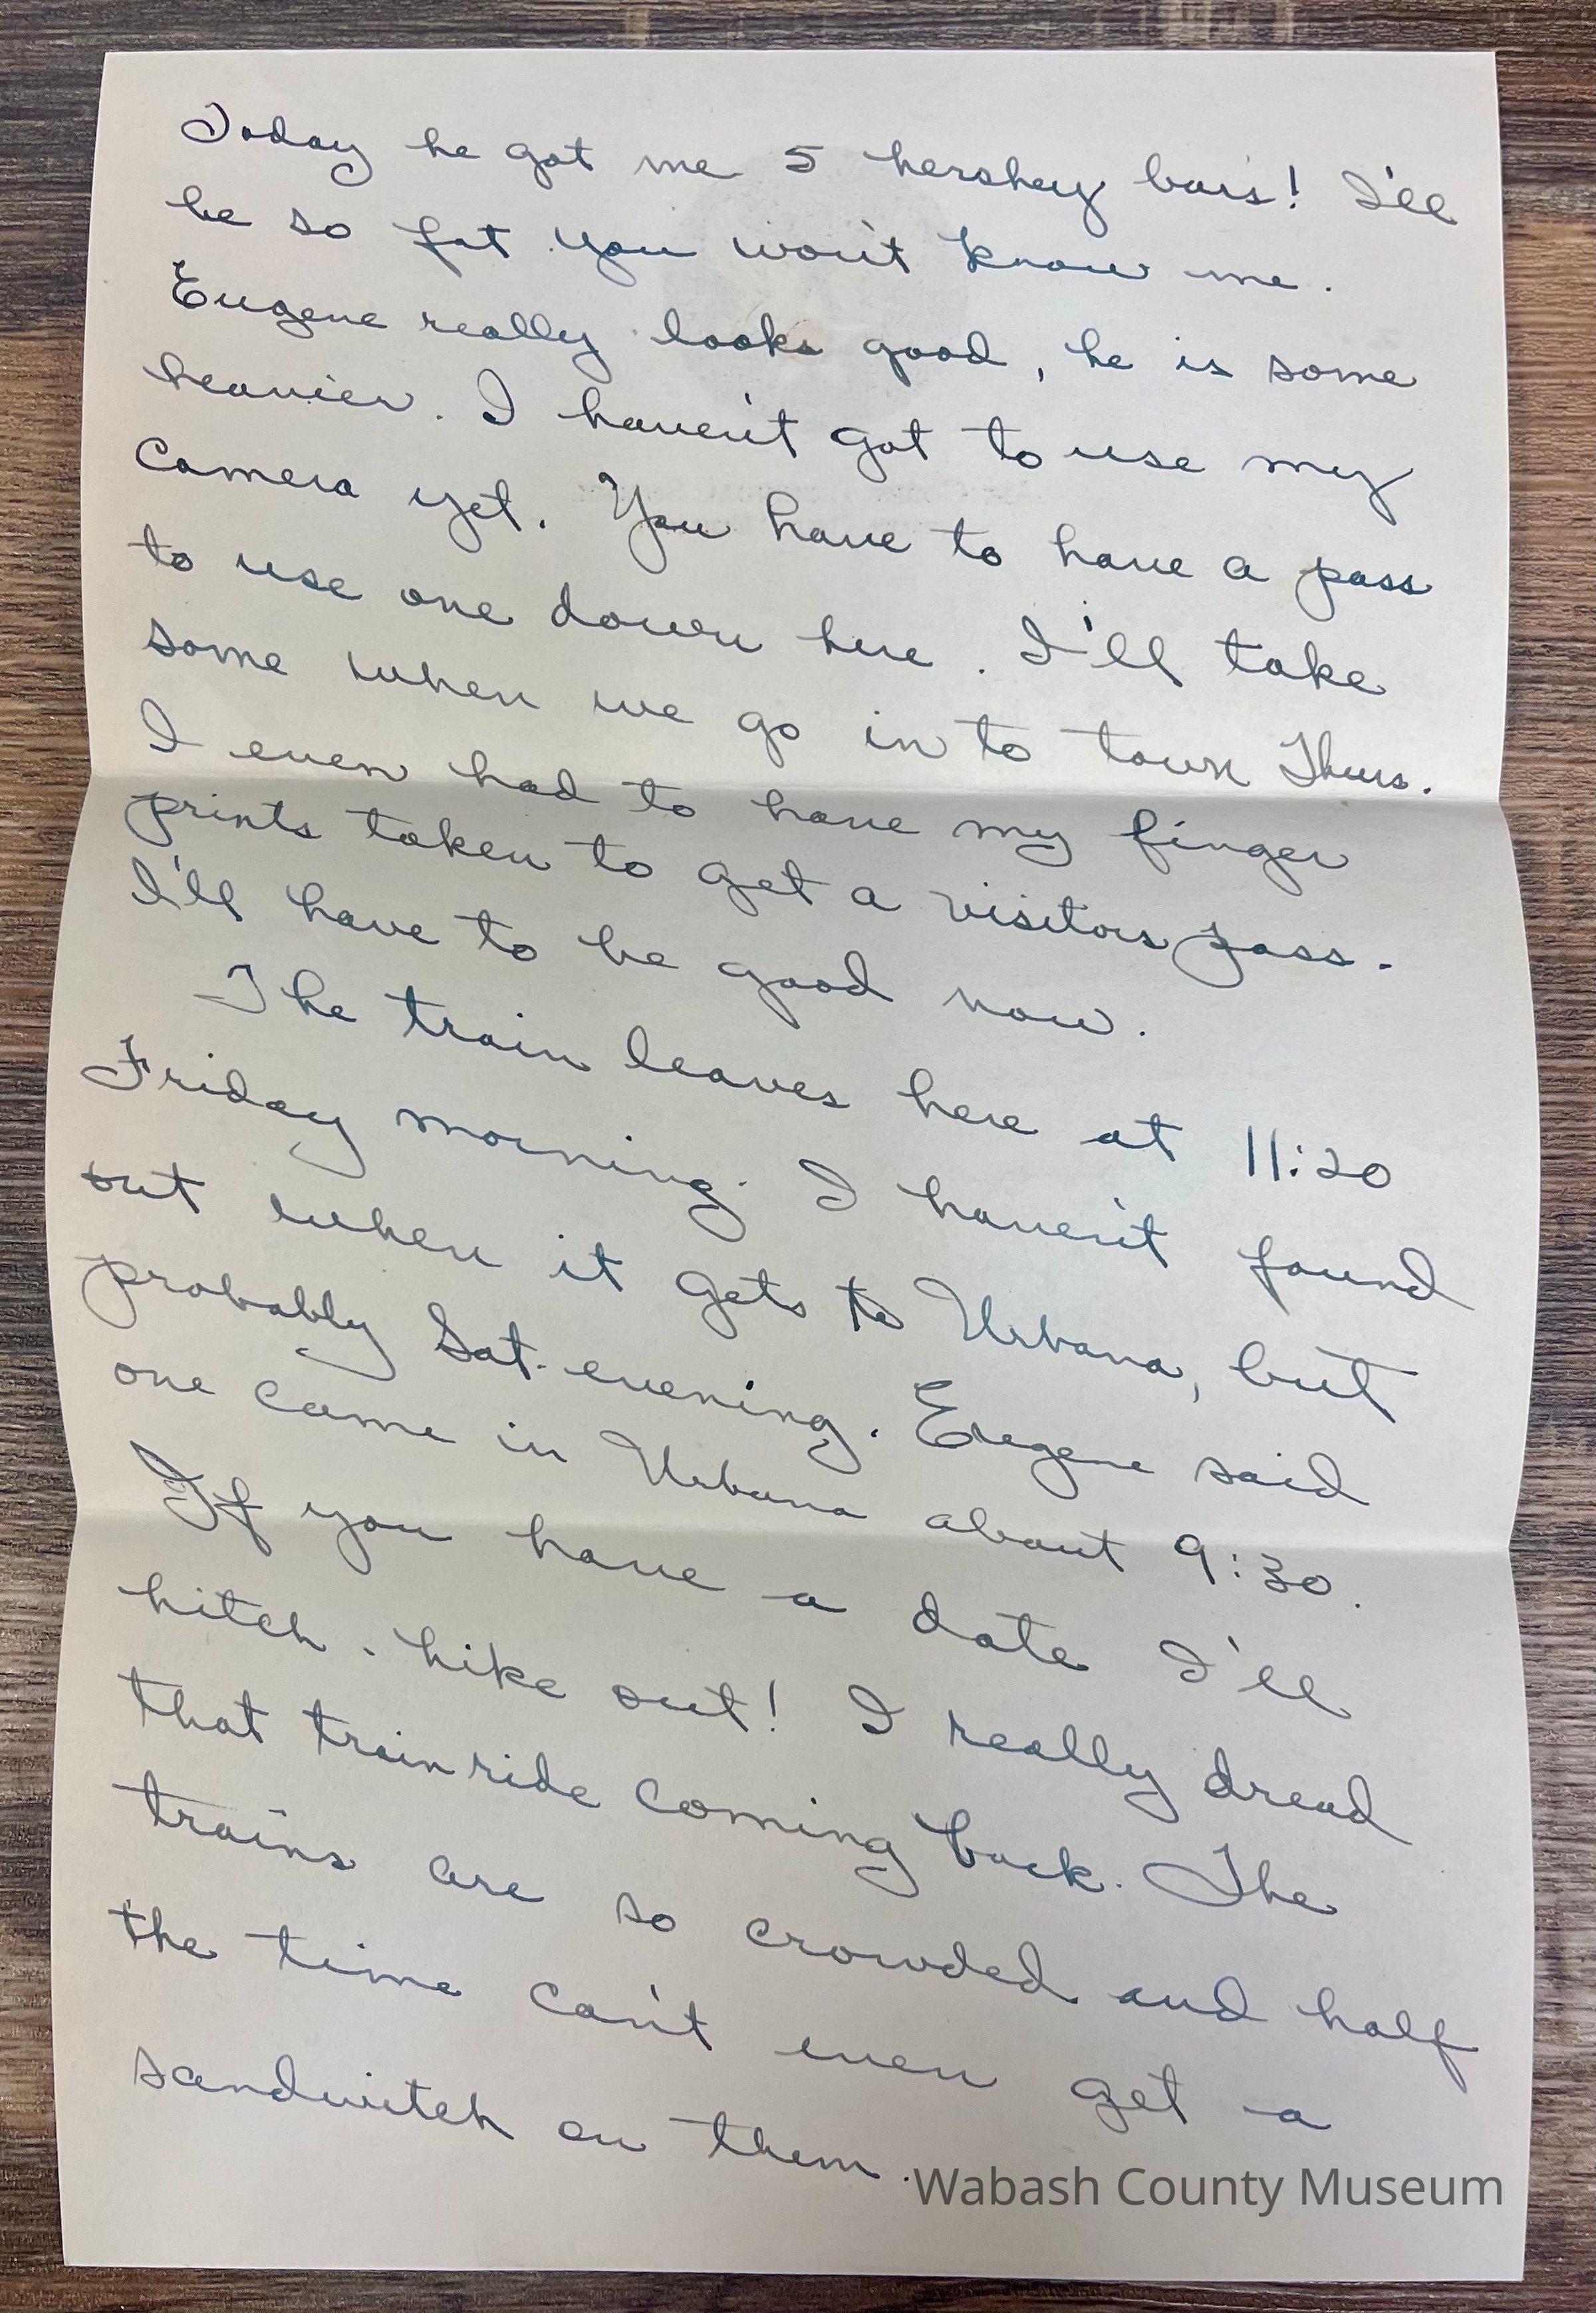 Today he got me 5 hershey bars! I'll
be so fat you won't know me.
Eugene really looks good, he is some
heavier. I haven't got to use my
camera yet. You have to have a pass
to use one down here. I'll take
some when we go in to town Thurs.
I even had to have my finger
prints taken to get a visitors pass.
I'll have to be good now.
The train leaves here at 11:20
Friday morning. I haven't found
out when it gets to Urbana, but
probably Sat. evening. Eugene said
one came in Urbana about 9:30.
If you have a date I'll
hitch-hike out! I really dread
that train ride coming back. The
trains are so crowded and half
the time can't even get a
sandwitch on them.
Wabash County Museum